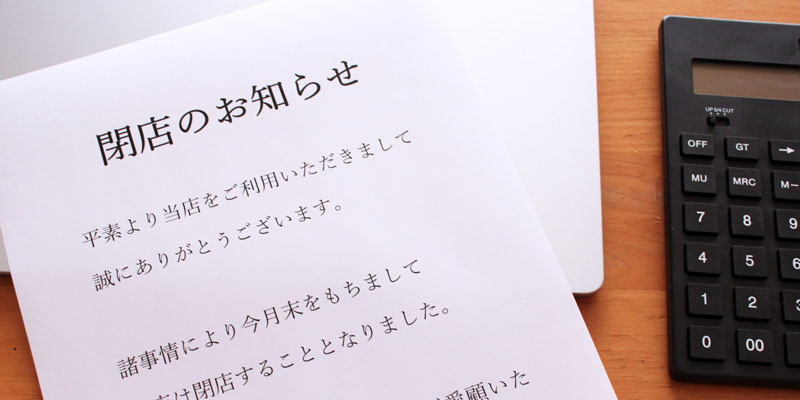 閉店のお知らせ
平素より当店をご利用いただきまして
誠にありがとうございます。
諸事情により今月末をもちまして
は閉店することとなりました。
愛顧いた
UP 5/4 CUT
OFF GT →
MU MRC M−
7 8 9
4 5 6
1 2 3
0 00